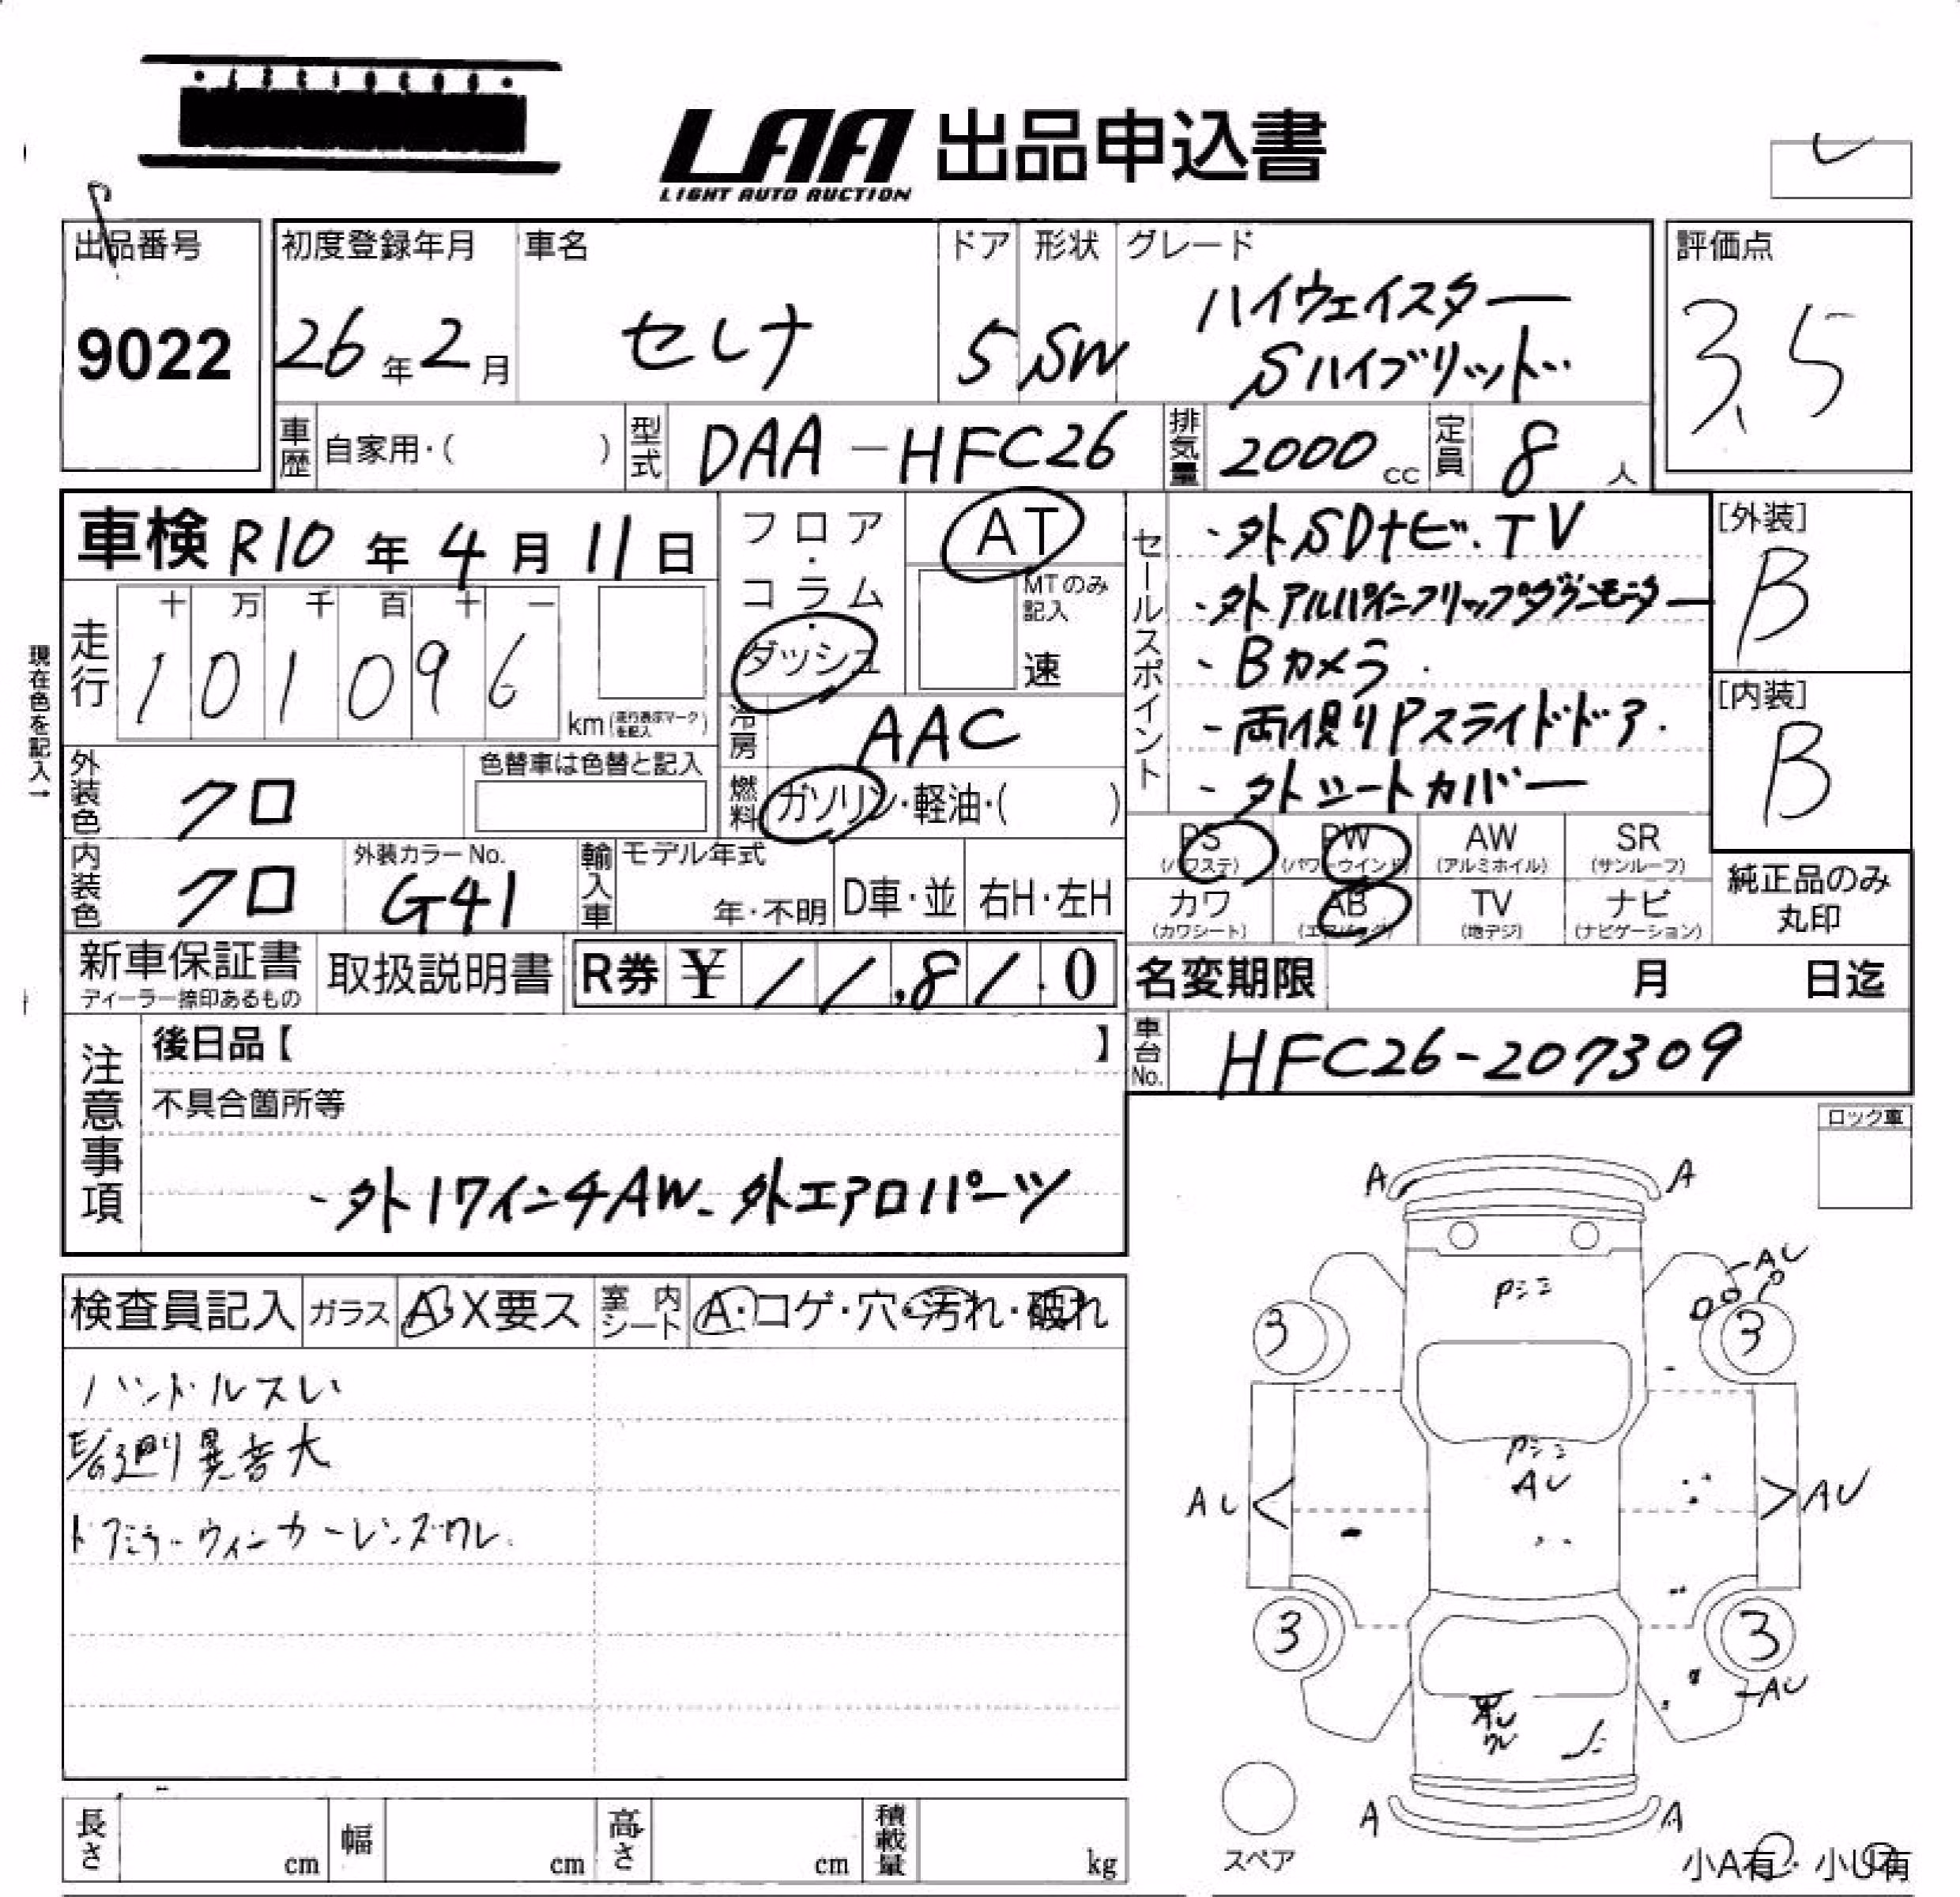 LAA 出品申込書
LIGHT AUTO AUCTION
出品番号
9022
初度登録年月
26年2月
車名
セレナ
ドア
5
形状
SW
グレード
ハイウェイスター
Sハイブリット゛
評価点
3.5
車歴 自家用・( )
型式 DAA-HFC26
排気量 2000cc
定員 8人
車検 R10年4月11日
フロア・コラム・ダッシュ
AT
MTのみ記入
速
セールスポイント
・外SDナビ.TV
・外アルパインフリップダウンモニター
・Bカメラ
・両側Pスライドドア.
・外シートカバー
[外装]
B
[内装]
B
現在色を記入→
走行
十 万 千 百 十 一
1 0 1 0 9 6
km(走行表示マークを記入)
冷房 AAC
燃料 ガソリン・軽油・( )
外装色 クロ
色替車は色替と記入
内装色 クロ
外装カラーNo.
G41
輸入車
モデル年式
年・不明
D車・並
右H・左H
PS (パワステ)
PW (パワーウインド)
AW (アルミホイル)
SR (サンルーフ)
カワ (カワシート)
AB (エアバッグ)
TV (地デジ)
ナビ (ナビゲーション)
純正品のみ
丸印
新車保証書
ディーラー捺印あるもの
取扱説明書
R券 ¥11,810
名変期限 月 日迄
車台No. HFC26-207309
注意事項
後日品【 】
不具合箇所等
・外17インチAW. 外エアロパーツ
ロック車
検査員記入
ガラス A・X要ス
室内シート A・コゲ・穴・汚れ・破れ
ハンドルスレ
廻り異音大
ドアミラーウィンカーレンズワレ.
A A
AU
P
3 3
AU AU
AU
3 3
AU
ワレ
A A
スペア
小A有・小U有
長さ cm
幅 cm
高さ cm
積載量 kg